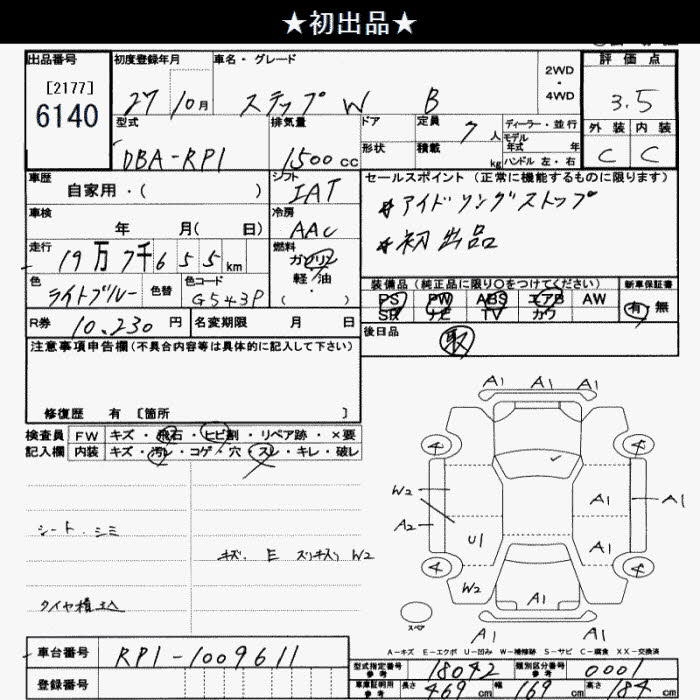 ★初出品★
出品番号 初度登録年月 車名・グレード 2WD・4WD 評価点
[2177]
6140
27 10月 ステップW B 3.5
型式 排気量 ドア 定員 7人 ディーラー・並行 外装 内装
モデル年式 年
DBA-RP1 1500cc 形状 積載 kg ハンドル 左・右 C C
車歴 シフト セールスポイント (正常に機能するものに限ります)
自家用・( ) IAT *アイドリングストップ
車検 冷房
年 月( 日) AAC *初出品
走行 燃料
19万7千655km ガソリン
軽・油
色 色替 色コード ( ) 装備品(純正品に限り○をつけてください) 新車保証書
ライトブルー G543P PS PW ABS エアB AW 有・無
SR ナビ TV カワ
R券 10.230円 名変期限 月 日 後日品 取
注意事項申告欄(不具合内容等は具体的に記入して下さい)
修復歴 有 [箇所 ]
検査員 FW キズ・飛石・ヒビ割・リペア跡・×要
記入欄 内装 キズ・汚レ・コゲ・穴・スレ・キレ・破レ
A1 A1 A1
4 4
W2 A1 A1
シート・シミ A2
キズ、E スリキズ W2 U1 A1
4 4
タイヤ積込 W2 A1
スペア A1 A1
A-キズ E-エクボ U-凹み W-補修跡 S-サビ C-腐食 XX-交換済
車台番号 RP1-1009611
型式指定番号 参考 18042 類別区分番号 参考 0001
登録番号 車庫証明用 参考 長さ 469cm 幅 169cm 高さ 184cm